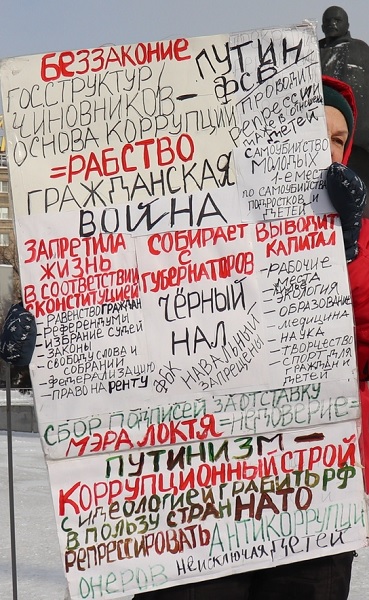 беззаконие
ГОССТРУКТУР/
ЧИНОВНИКОВ –
ОСНОВА КОРРУПЦИИ
=РАБСТВО
ГРАЖДАНСКАЯ
ВОЙНА
ПУТИН
ФСБ
ПРОВОДИТ
репрессии
детей
САМОУБИЙСТВО
МОЛОДЫХ
1-е МЕСТ
по самоубийств
подростков и
ДЕТЕЙ
ЗАПРЕТИЛА
ЖИЗНЬ
В СООТВЕТСТВИИ
С КОНСТИТУЦИЕЙ
–РАВЕНСТВО ГРАЖДАН
–РЕФЕРЕНДУМЫ
–ИЗБРАНИЕ СУДЕЙ
–ЗАКОНЫ
–СВОБОДУ СЛОВА И
СОБРАНИЙ
–ФЕДЕРАЛИЗАЦИЮ
–ПРАВО НА РЕНТУ
СОБИРАЕТ
С
ГУБЕРНАТОРОВ
ЧЁРНЫЙ
НАЛ
ФБК
НАВАЛЬНЫЙ
ЗАПРЕЩЕНЫ
ВЫВОДИТ
КАПИТАЛ
– РАБОЧИЕ
МЕСТА
– ЭКОЛОГИЯ
– ОБРАЗОВАНИЕ
– МЕДИЦИНА
– НАУКА
– ТВОРЧЕСТВО
СПОРТ ДЛЯ
ГРАЖДАН И
ДЕТЕЙ
СБОР ПОДПИСЕЙ ЗА ОТСТАВКУ
МЭРА ЛОКТЯ =НЕДОВЕРИЕ=
ПУТИНИЗМ –
КОРРУПЦИОННЫЙ СТРОЙ
С ИДЕОЛОГИЕЙ ГРАБИТЬ РФ
В ПОЛЬЗУ СТРАН НАТО
РЕПРЕССИРОВАТЬ АНТИКОРРУПЦИ
ОНЕРОВ НЕ ИСКЛЮЧАЯ ДЕТЕЙ